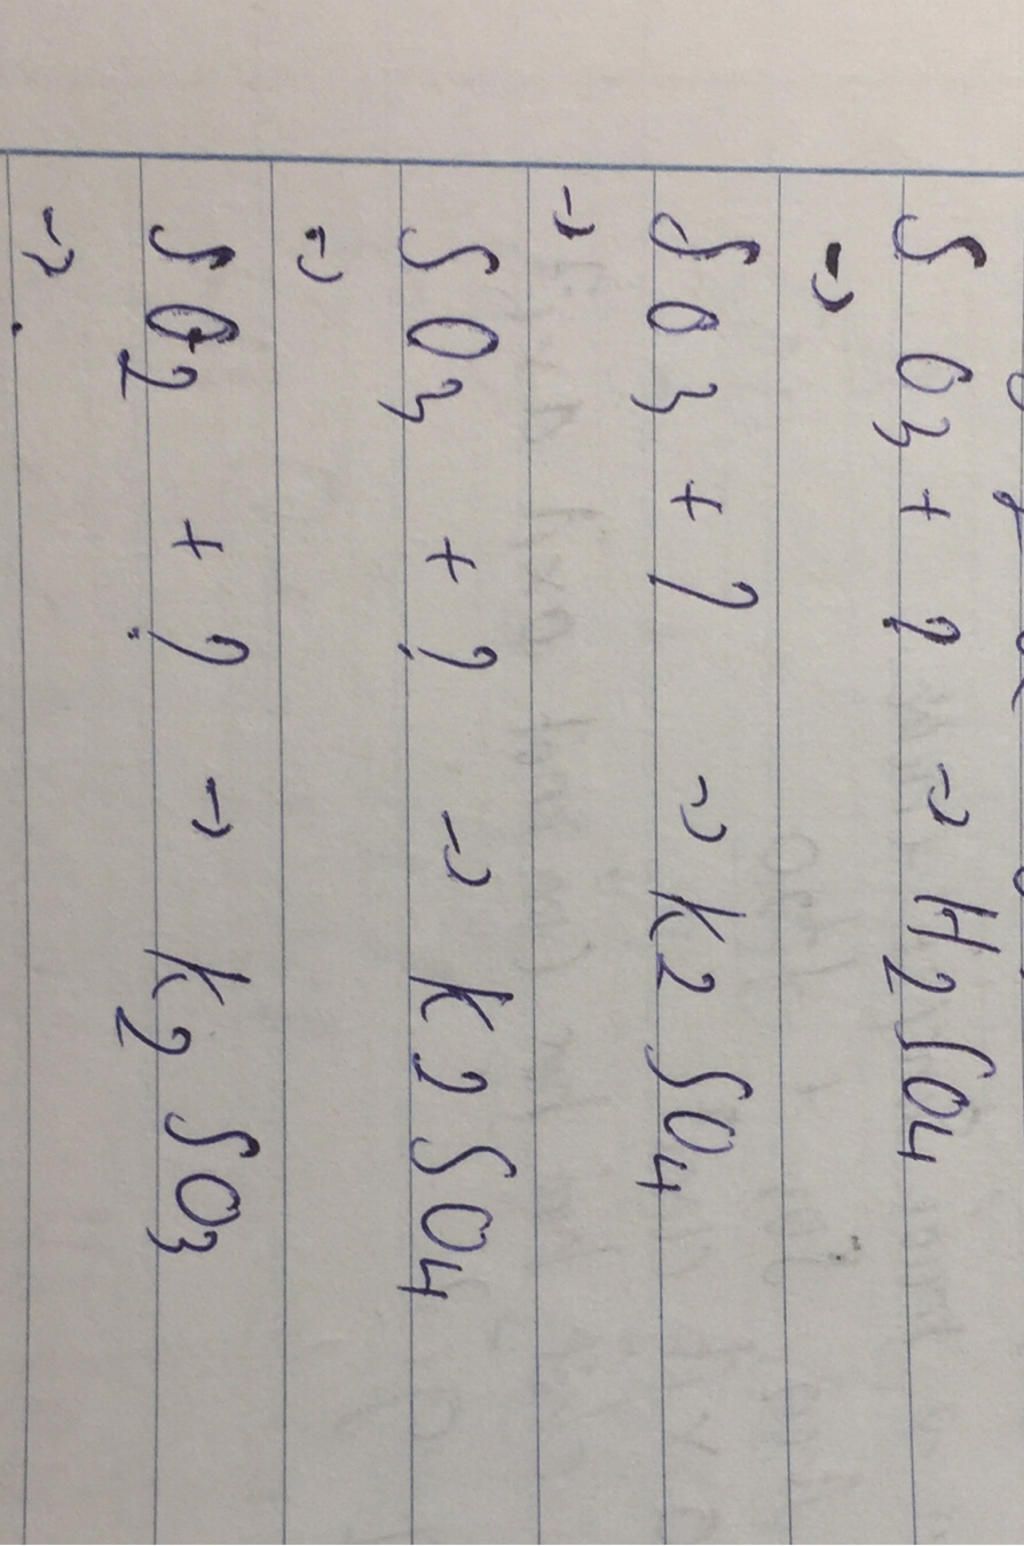 SO3 + ? → H2SO4
→
SO3 + ? → K2SO4
→
SO3 + ? → K2SO4
→
SO2 + ? → K2SO3
→